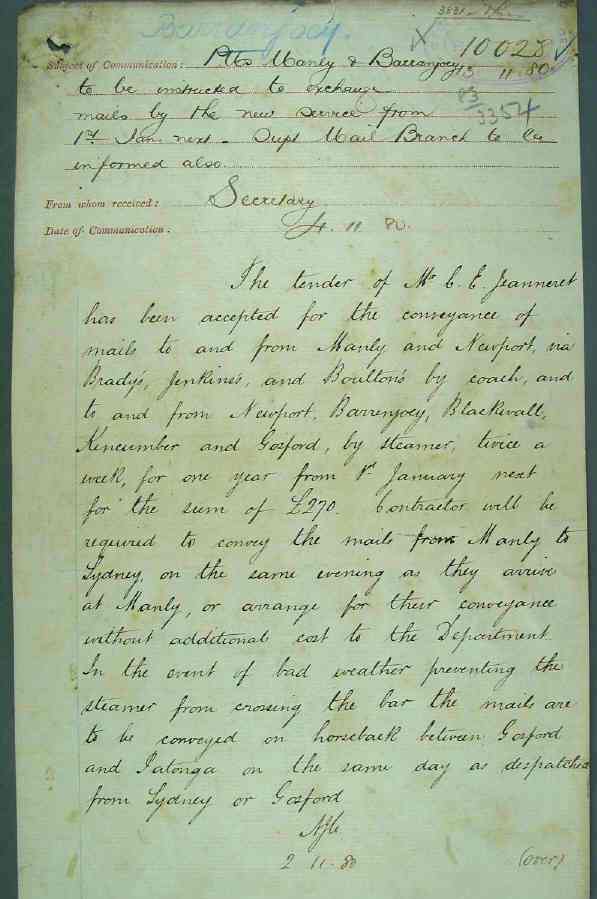 Barranjoey.
10028
Subject of Communication: PMs Manly & Barranjoey 11 80
to be instructed to exchange 83/3354
mails by the new service from
1st Jan. next - Supt Mail Branch to be
informed also.
From whom received: Secretary
Date of Communication: 4. 11 80.
The tender of Mr C. E. Jeanneret
has been accepted for the conveyance of
mails to and from Manly and Newport, via
Brady's, Jenkins's, and Boulton's by coach, and
to and from Newport, Barrenjoey, Blackwall,
Kincumber and Gosford, by steamer, twice a
week, for one year from 1st January next
for the sum of £270. Contractor will be
required to convey the mails from Manly to
Sydney, on the same evening as they arrive
at Manly, or arrange for their conveyance
without additional cost to the Department.
In the event of bad weather preventing the
steamer from crossing the bar the mails are
to be conveyed on horseback between Gosford
and Patonga on the same day as despatched
from Sydney or Gosford
2 11. 80 (over)